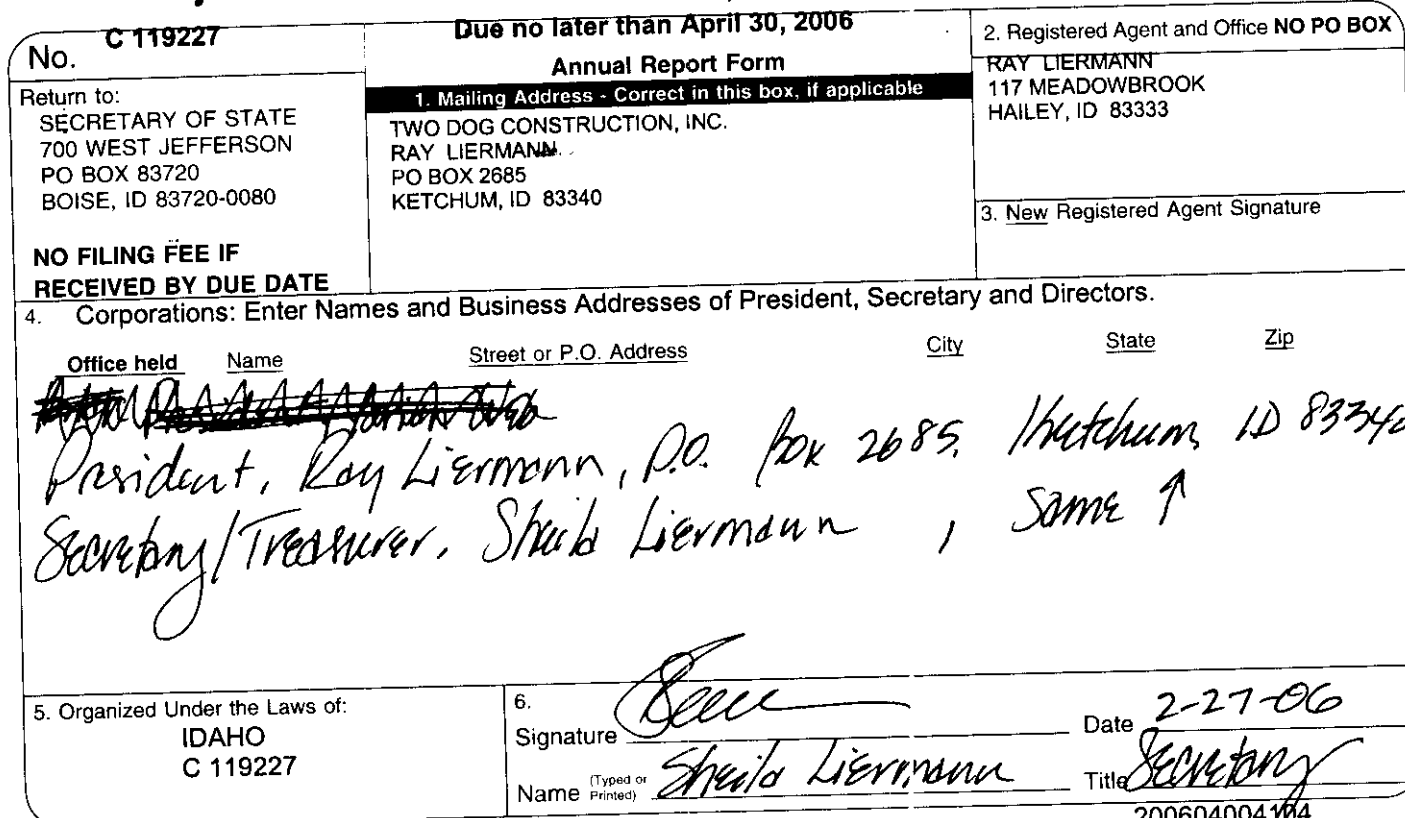 No. C 119227
Return to:
SECRETARY OF STATE
700 WEST JEFFERSON
PO BOX 83720
BOISE, ID 83720-0080
NO FILING FEE IF
RECEIVED BY DUE DATE
Due no later than April 30, 2006
Annual Report Form
1. Mailing Address - Correct in this box, if applicable
TWO DOG CONSTRUCTION, INC.
RAY LIERMANN
PO BOX 2685
KETCHUM, ID 83340
2. Registered Agent and Office NO PO BOX
RAY LIERMANN
117 MEADOWBROOK
HAILEY, ID 83333
3. New Registered Agent Signature
4. Corporations: Enter Names and Business Addresses of President, Secretary and Directors.
Office held Name Street or P.O. Address City State Zip
President, Ray Liermann, P.O. Box 2685, Ketchum, ID 83340
Secretary/Treasurer, Sheila Liermann, Same ↑
5. Organized Under the Laws of:
IDAHO
C 119227
6.
Signature Date 2-27-06
Name (Typed or Printed) Sheila Liermann Title Secretary